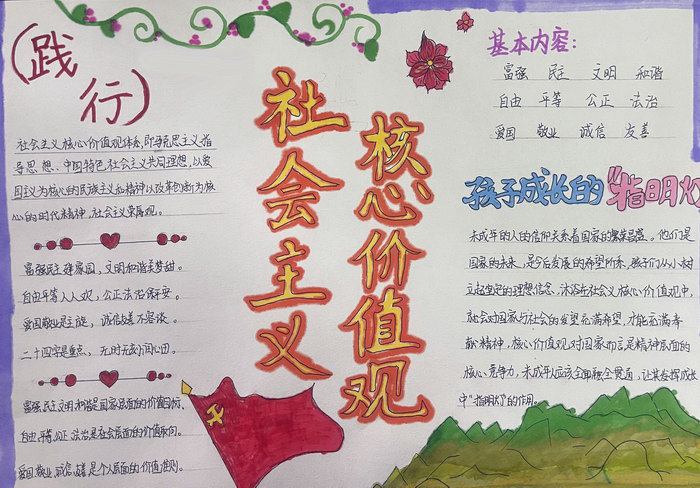 (践行)
社会主义核心价值观体系,即马克思主义指
导思想、中国特色社会主义共同理想,以爱
国主义为核心的民族主义和精神以改革创新为核
心的时代精神,社会主义荣辱观。
富强民主建家园,文明和谐美梦甜。
自由平等人人欢,公正法治保平安。
爱国敬业是主旋,诚信友善不容谈。
二十四字是重点,无时无刻
富强民主文明和谐是国家层面的价值目标、
自由、平等、公正、法治是社会层面的价值取向。
爱国敬业、诚信、友善是个人层面的价值准则。
社会主义
核心价值观
基本内容:
富强 民主 文明 和谐
自由 平等 公正 法治
爱国 敬业 诚信 友善
孩子成长的"指明灯
未成年的人的信仰关系着国家的繁荣昌盛。他们是
国家的未来,是今后发展的希望所系,孩子们从小树
立起坚定的理想信念,沐浴在社会义核心价值观中,
就会对国家社会的发望充满希望,才能充满奉
献精神,核心价值观对国家而言是精神层面的
核心竞争力,未成年人应该全面融会贯通,让其发挥成长
中"指明灯"的作用。